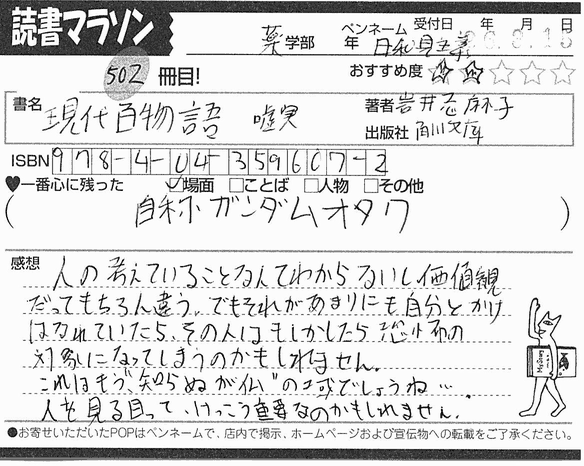 読書マラソン
薬学部 年 ペンネーム 日和見主義 受付日 年 月 日
502冊目! おすすめ度 ★★☆☆☆
書名 現代百物語 嘘実 著者 岩井志麻子
出版社 角川文庫
ISBN 978-4-04-359607-2
♥一番心に残った ☑場面 □ことば □人物 □その他
(自称ガンダムオタク)
感想 人の考えていることなんてわからないし価値観
だってもちろん違う。でもそれがあまりにも自分とかけ
はなれていたら、その人はもしかしたら恐怖の
対象になってしまうのかもしれません。
これはもう、"知らぬが仏"の域でしょうね…。
人を見る目って、けっこう重要なのかもしれません。
●お寄せいただいたPOPはペンネームで、店内で掲示、ホームページおよび宣伝物への転載をご了承ください。